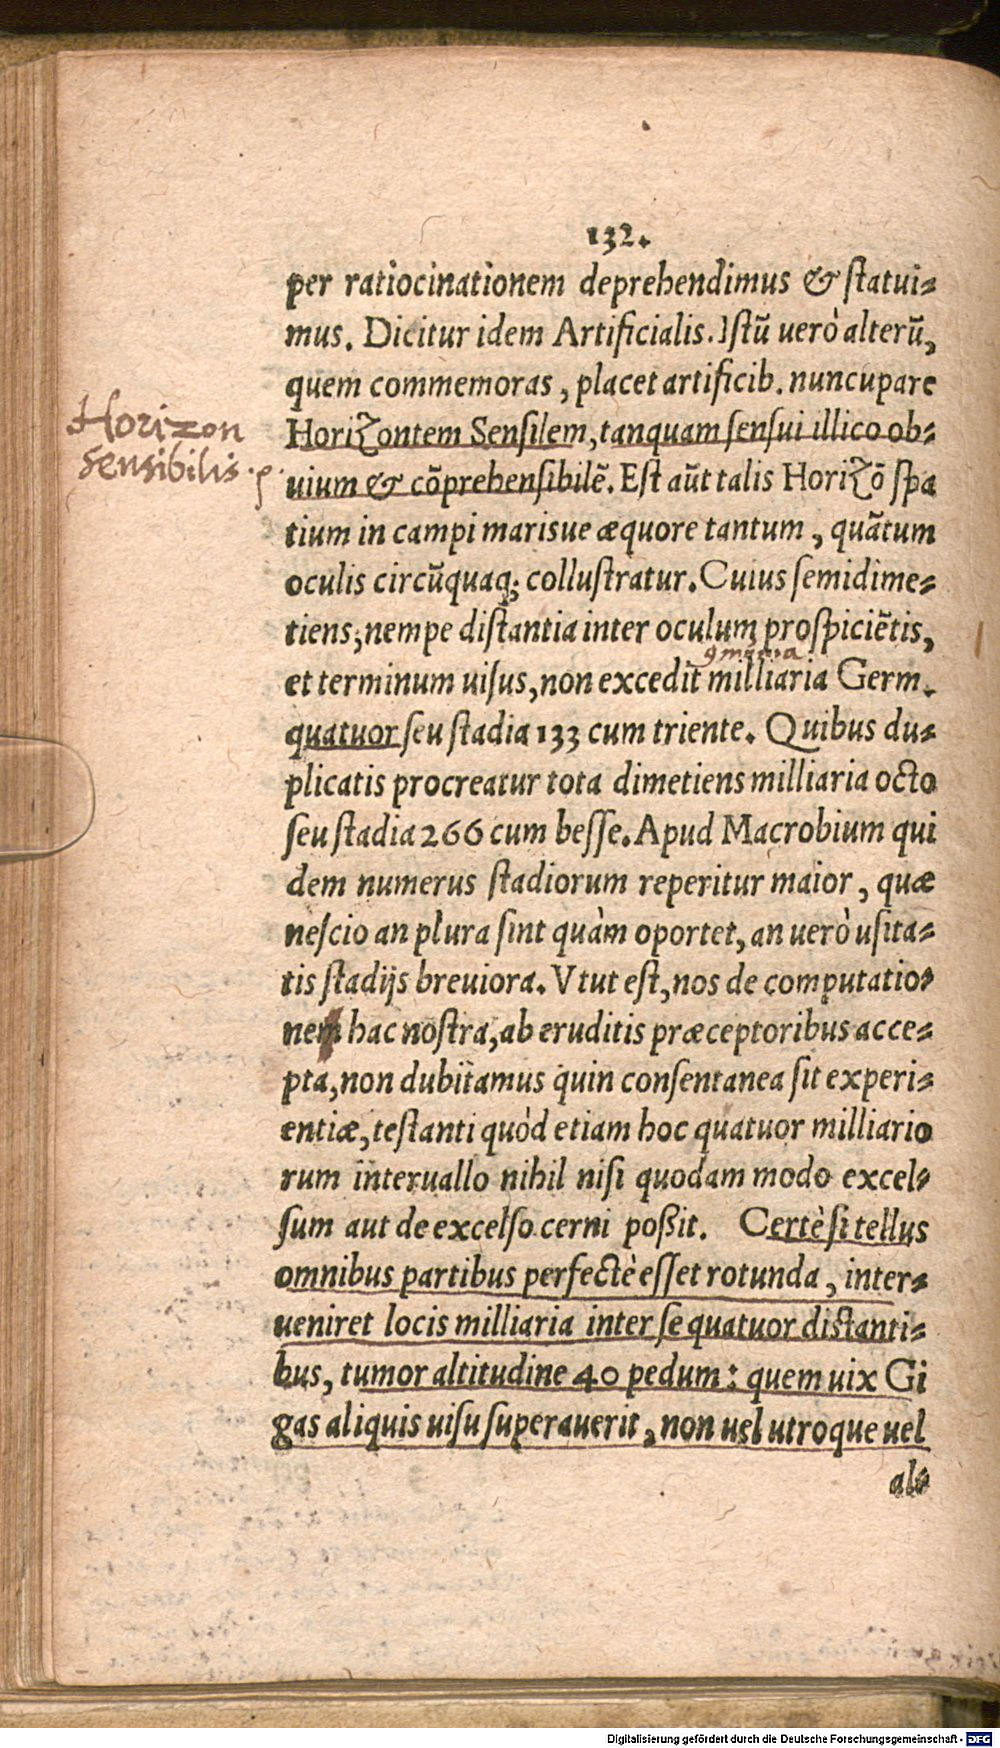 132.
per ratiocinationem deprehendimus & ſtatui⸗
mus. Dicitur idem Artificialis. Iſtũ uerò alterũ,
quem commemoras, placet artificib. nuncupare
Horizontem Senſilem, tanquam ſenſui illico ob⸗
Horizon
uium & cõprehenſibilẽ. Eſt aũt talis Horizõ ſpa
ſensibilis
tium in campi marisue æquore tantum, quãtum
oculis circũquaq; colluſtratur. Cuius ſemidime⸗
tiens, nempe diſtantia inter oculum proſpiciẽtis,
et terminum uiſus, non excedit milliaria Germ.
quatuor ſeu ſtadia 133 cum triente. Quibus du⸗
plicatis procreatur tota dimetiens milliaria octo
ſeu ſtadia 266 cum beſſe. Apud Macrobium qui
dem numerus ſtadiorum reperitur maior, quæ
neſcio an plura ſint quàm oportet, an uerò uſita⸗
tis ſtadijs breuiora. Vtut eſt, nos de computatio⸗
nem hac noſtra, ab eruditis præceptoribus acce⸗
pta, non dubitamus quin conſentanea ſit experi⸗
entiæ, teſtanti quòd etiam hoc quatuor milliario
rum interuallo nihil niſi quodam modo excel⸗
ſum aut de excelſo cerni poßit. Certè ſi tellus
omnibus partibus perfectè eſſet rotunda, inter⸗
ueniret locis milliaria inter ſe quatuor diſtanti⸗
bus, tumor altitudine 40 pedum: quem uix Gi
gas aliquis uiſu ſuperauerit, non uel utroque uel
al⸗
Digitalisierung gefördert durch die Deutsche Forschungsgemeinschaft - DFG